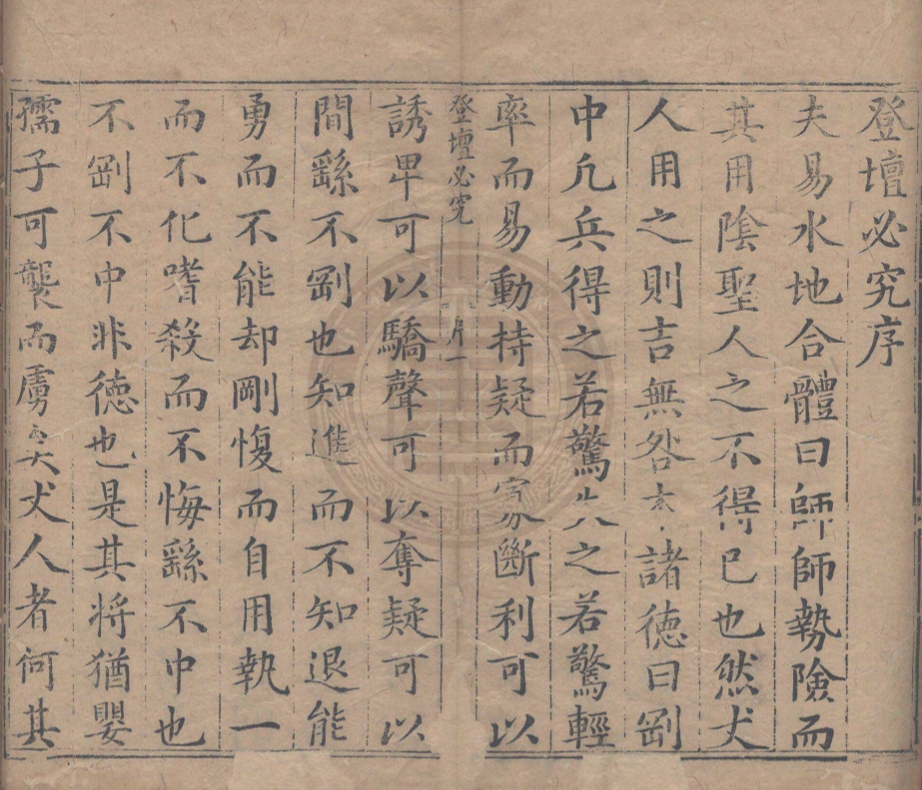 登壇必究序
夫易水地合體曰師師勢險而
其用陰聖人之不得已也然丈
人用之則吉無咎本諸德曰剛
中凡兵得之若驚失之若驚輕
率而易動持疑而寡斷利可以
登壇必究
序一
誘卑可以驕聲可以奪疑可以
間繇不剛也知進而不知退能
勇而不能却剛愎而自用執一
而不化嗜殺而不悔繇不中也
不剛不中非德也是其將猶嬰
孺子可襲而虜矣丈人者何其